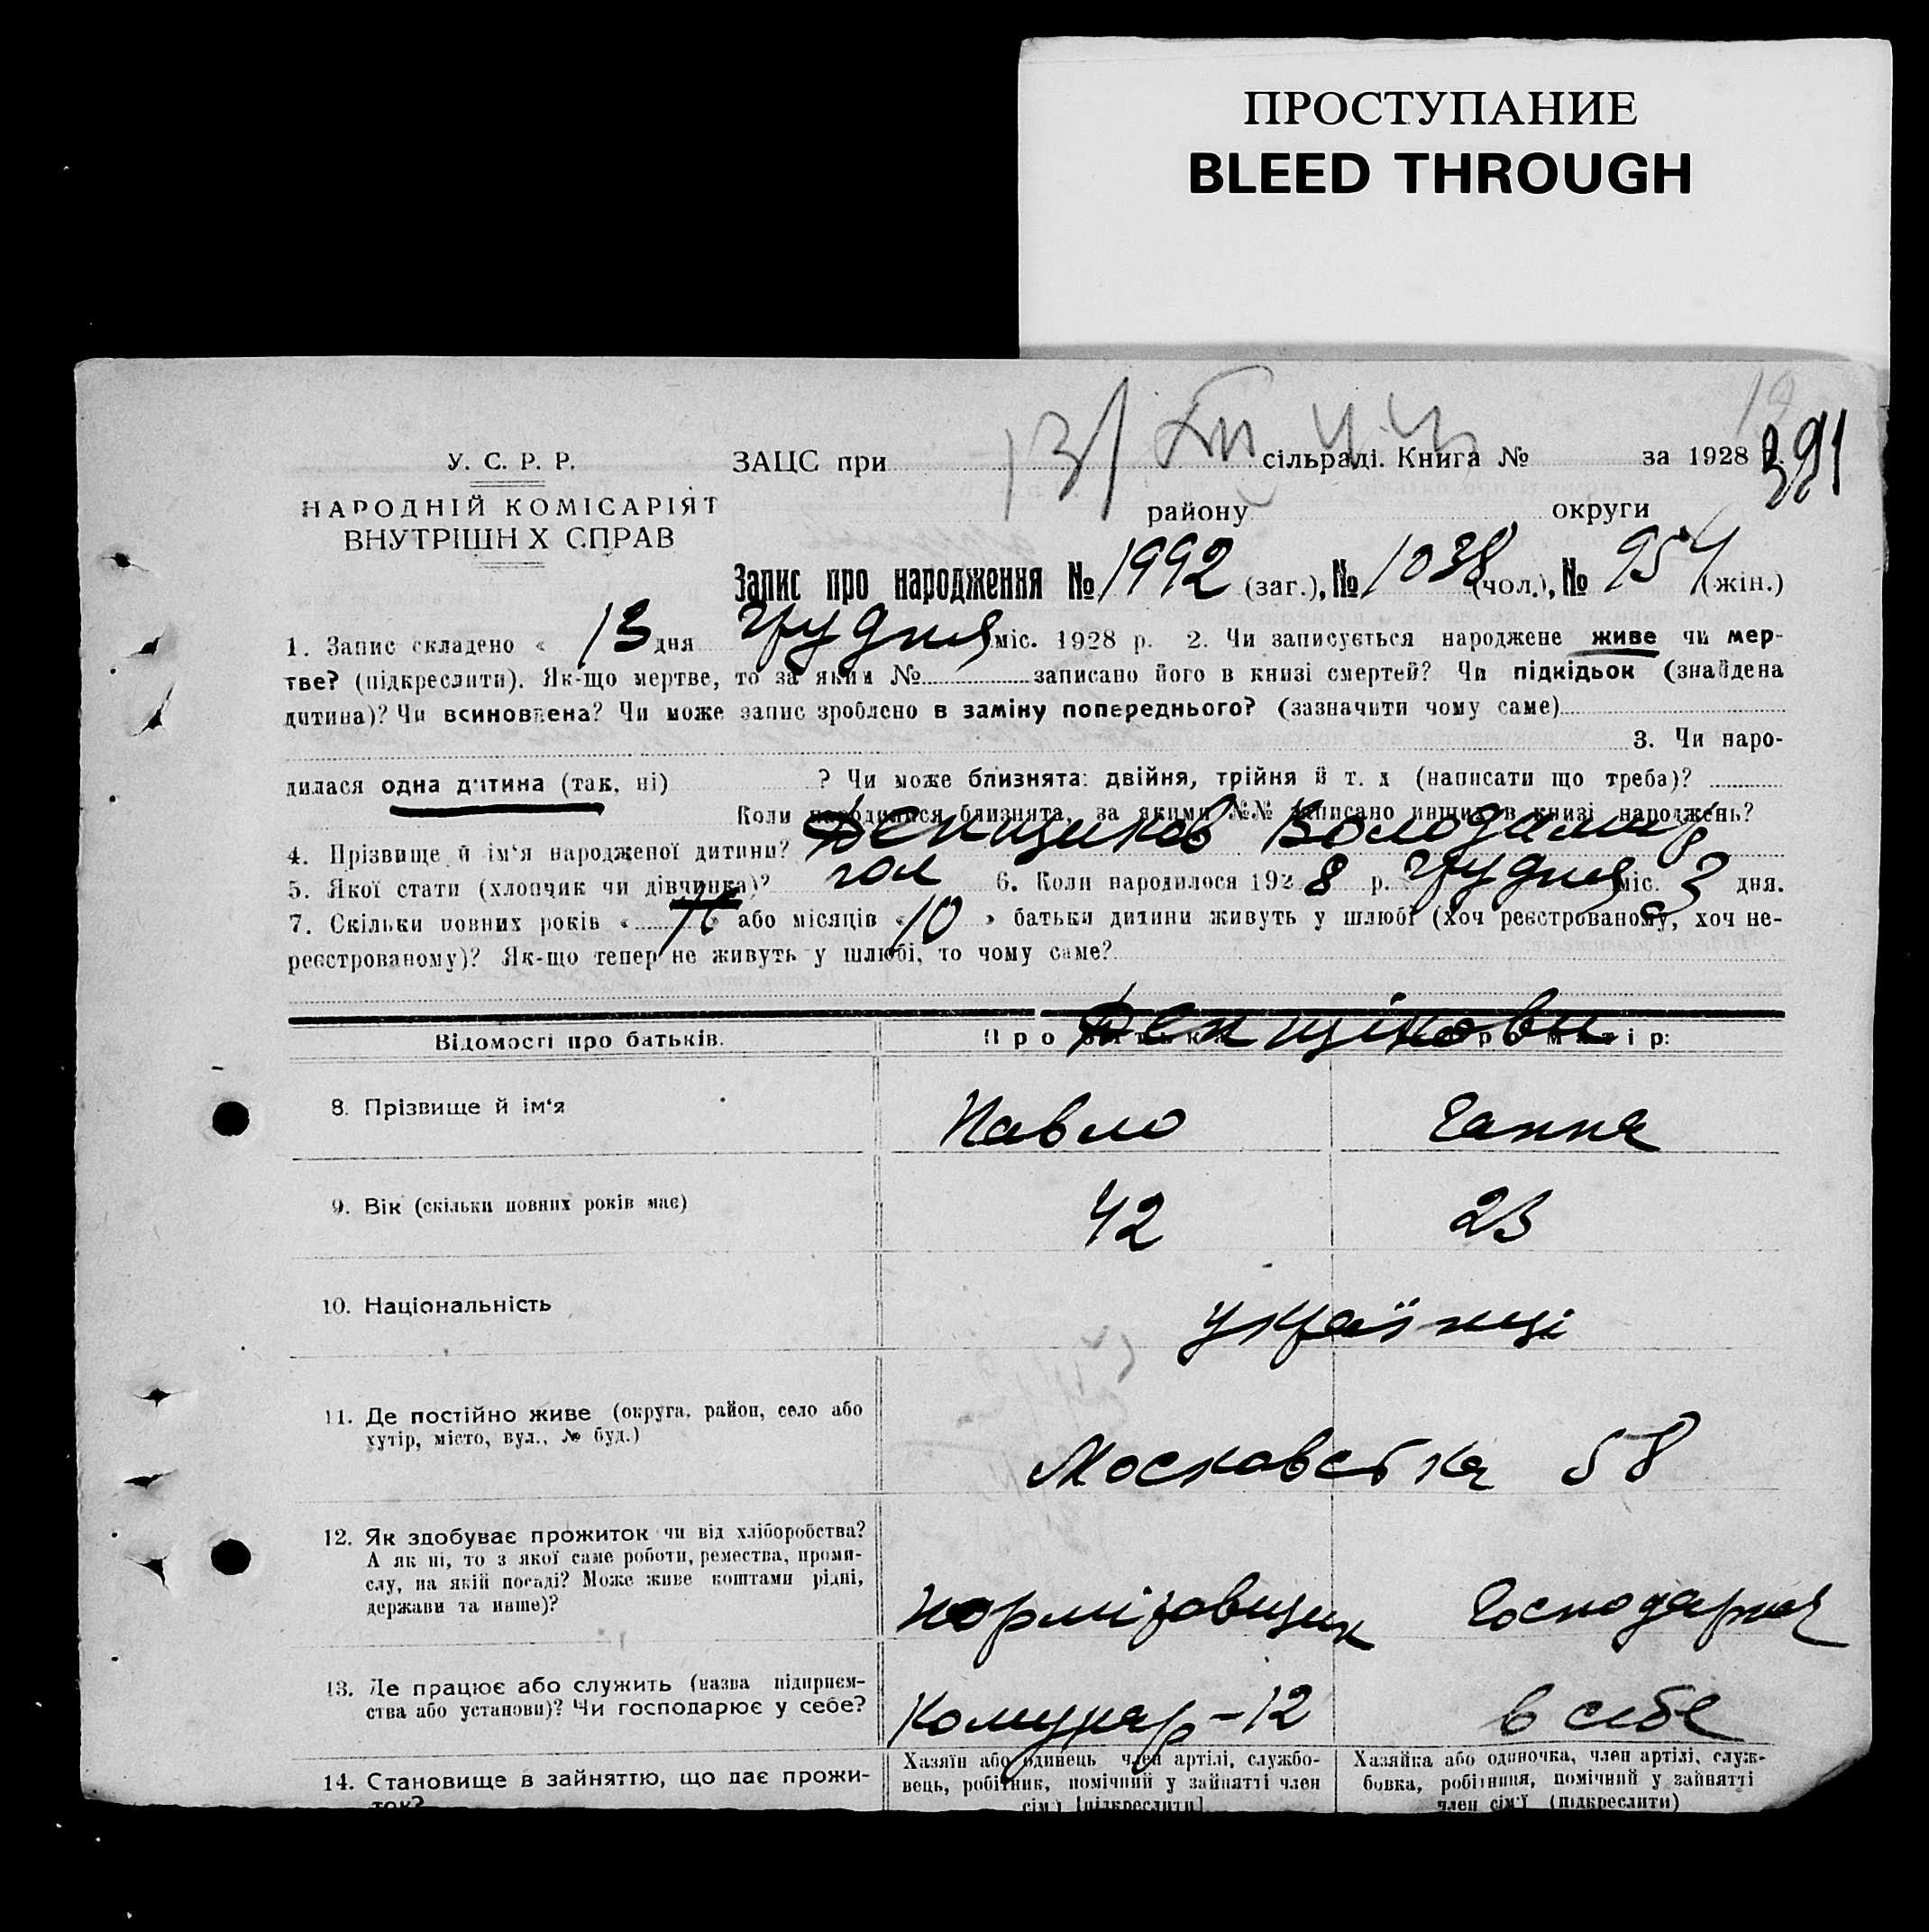 ПРОСТУПАНИЕ
BLEED THROUGH
У. С. Р. Р.
НАРОДНІЙ КОМІСАРІЯТ
ВНУТРІШН Х СПРАВ
ЗАЦС при сільраді. Книга № за 1928 р. 391
району округи
Запис про народження № 1992 (заг.), № 1038 (чол.), № 954 (жін.)
1. Запис складено « 13 дня грудня міс. 1928 р. 2. Чи записується народжене живе чи мер-
тве? (підкреслити). Як-що мертве, то за яким № записано його в книзі смертей? Чи підкідьок (знайдена
дитина)? Чи всиновлена? Чи може запис зроблено в заміну попереднього? (зазначити чому саме)
3. Чи наро-
дилася одна дитина (так, ні) ? Чи може близнята: двійня, трійня й т. д (написати що треба)?
Коли народилися близнята, за якими №№ записано инших в книзі народжень?
4. Прізвище й ім‘я народженої дитини? Денщиков Володимир
5. Якої стати (хлопчик чи дівчинка)? чол 6. Коли народилося 1928 р. грудня міс. 3 дня.
7. Скільки повних років « » або місяців « 10 » батьки дитини живуть у шлюбі (хоч реєстрованому, хоч не-
реєстрованому)? Як-що тепер не живуть у шлюбі, то чому саме?
Денщікови
Відомості про батьків. Про батька Про матір:
8. Прізвище й ім‘я Павло Ганна
9. Вік (скільки повних років має) 42 23
10. Національність українці
11. Де постійно живе (округа, район, село або
хутір, місто, вул., № буд.)
Московська 58
12. Як здобуває прожиток чи від хліборобства?
А як ні, то з якої саме роботи, ремества, проми-
слу, на якій посаді? Може живе коштами рідні,
держави та инше)?
Норміровщик Господарка
13. Де працює або служить (назва підприєм-
ства або установи)? Чи господарює у себе?
Комунар-12 в себе
14. Становище в зайняттю, що дає прожи-
ток?
Хазяїн або одинець член артілі, службо-
вець, робітник, помічний у зайнятті член
сім'ї [підкреслити]
Хазяйка або одиночка, член артілі, служ-
бовка, робітниця, помічний у зайнятті
член сім'ї (підкреслити)